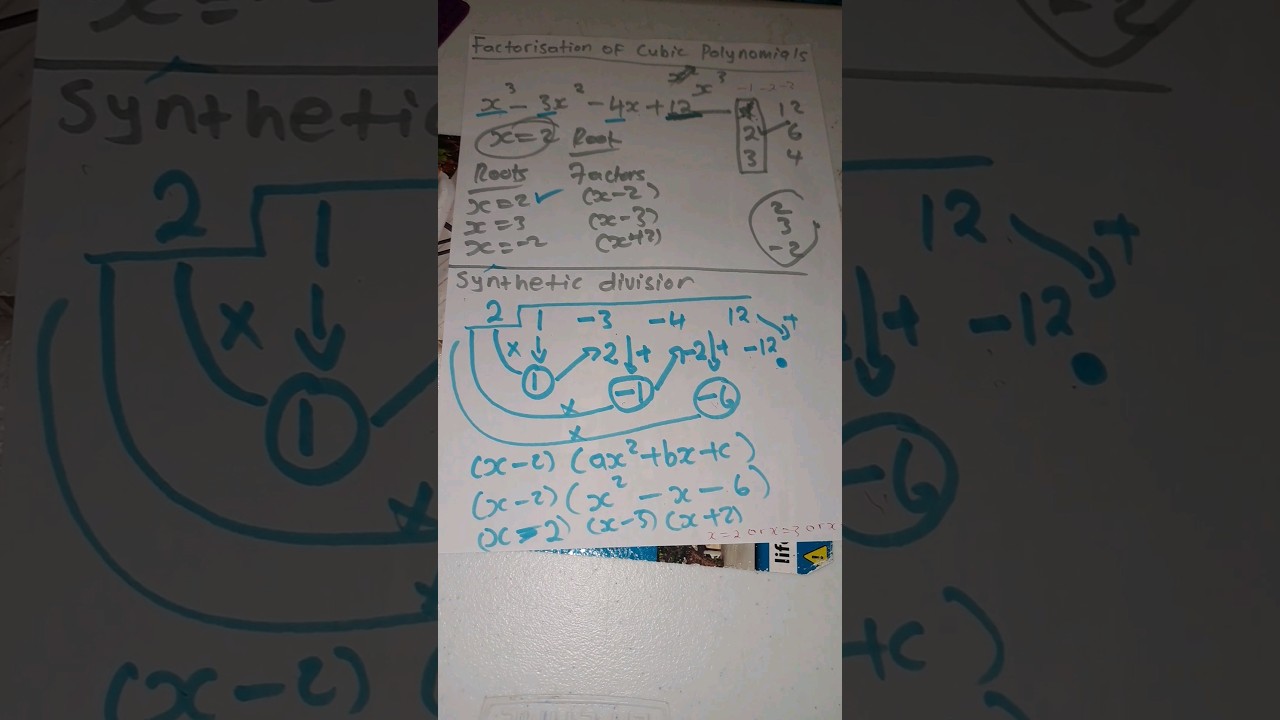 Factorisation of Cubic Polynomials
x³ - 3x² - 4x + 12
x³ -1 -2 -3
12
2 6
3 4
x = 2 Root
Roots Factors
x = 2 ✓ (x-2)
x = 3 (x-3)
x = -2 (x+2)
2
3
-2
Synthetic division
2 1 -3 -4 12 +
x 2 + -2 + -12
1 -1 -6
x
x
(x-2) (ax² + bx + c)
(x-2) (x² - x - 6)
(x-2) (x-3) (x+2)
x = 2 or x = 3 or x
life
Synthetic
2 1
x
1
x
x
(x-2)
12 +
+ -12
-6
+c)
-2